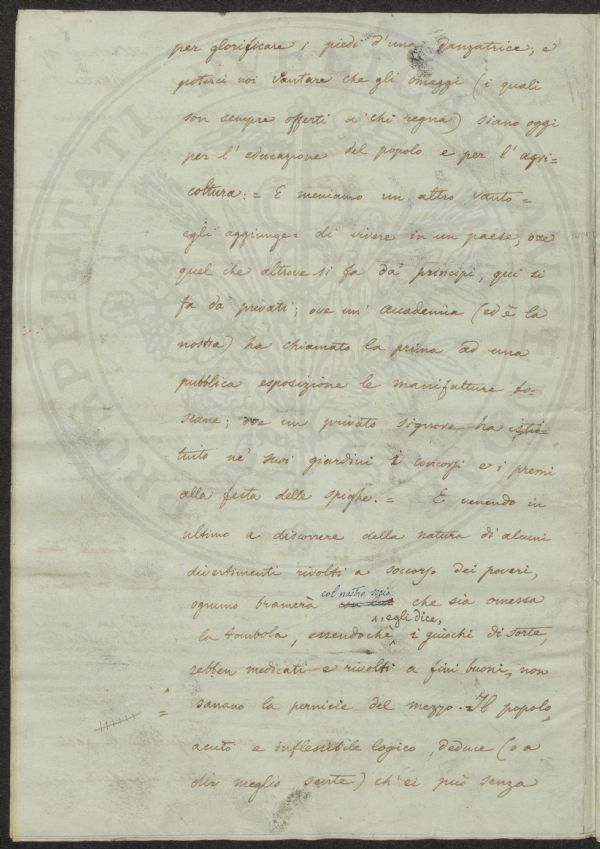 per glorificare i piedi d'una danzatrice, e
poterci noi vantare che gli omaggi (i quali
son sempre offerti a chi regna) siano oggi
per l'educazione del popolo e per l'agri=
coltura. = E meniamo un altro vanto =
egli aggiunge = di vivere in un paese, ove
quel che altrove si fa da' principi, qui si
fa da' privati; ove un' Accademia (ed è la
nostra) ha chiamato la prima ad una
pubblica esposizione le manifatture to=
scane; ove un privato signore ha isti=
tuito ne' suoi giardini i concorsi e i premi
alla festa delle spighe. = E venendo in
ultimo a discorrere della natura di alcuni
divertimenti rivolti a soccorso dei poveri,
ognuno bramerà col nostro socio che sia omessa
la tombola, essendochè, egli dice, i giuochi di sorte,
sebben medicati e rivolti a fini buoni, non
sanano la pernicie del mezzo. = Il popolo,
acuto e inflessibile logico, deduce (o a
dir meglio sente) ch' ei può senza
PROSPERITATI